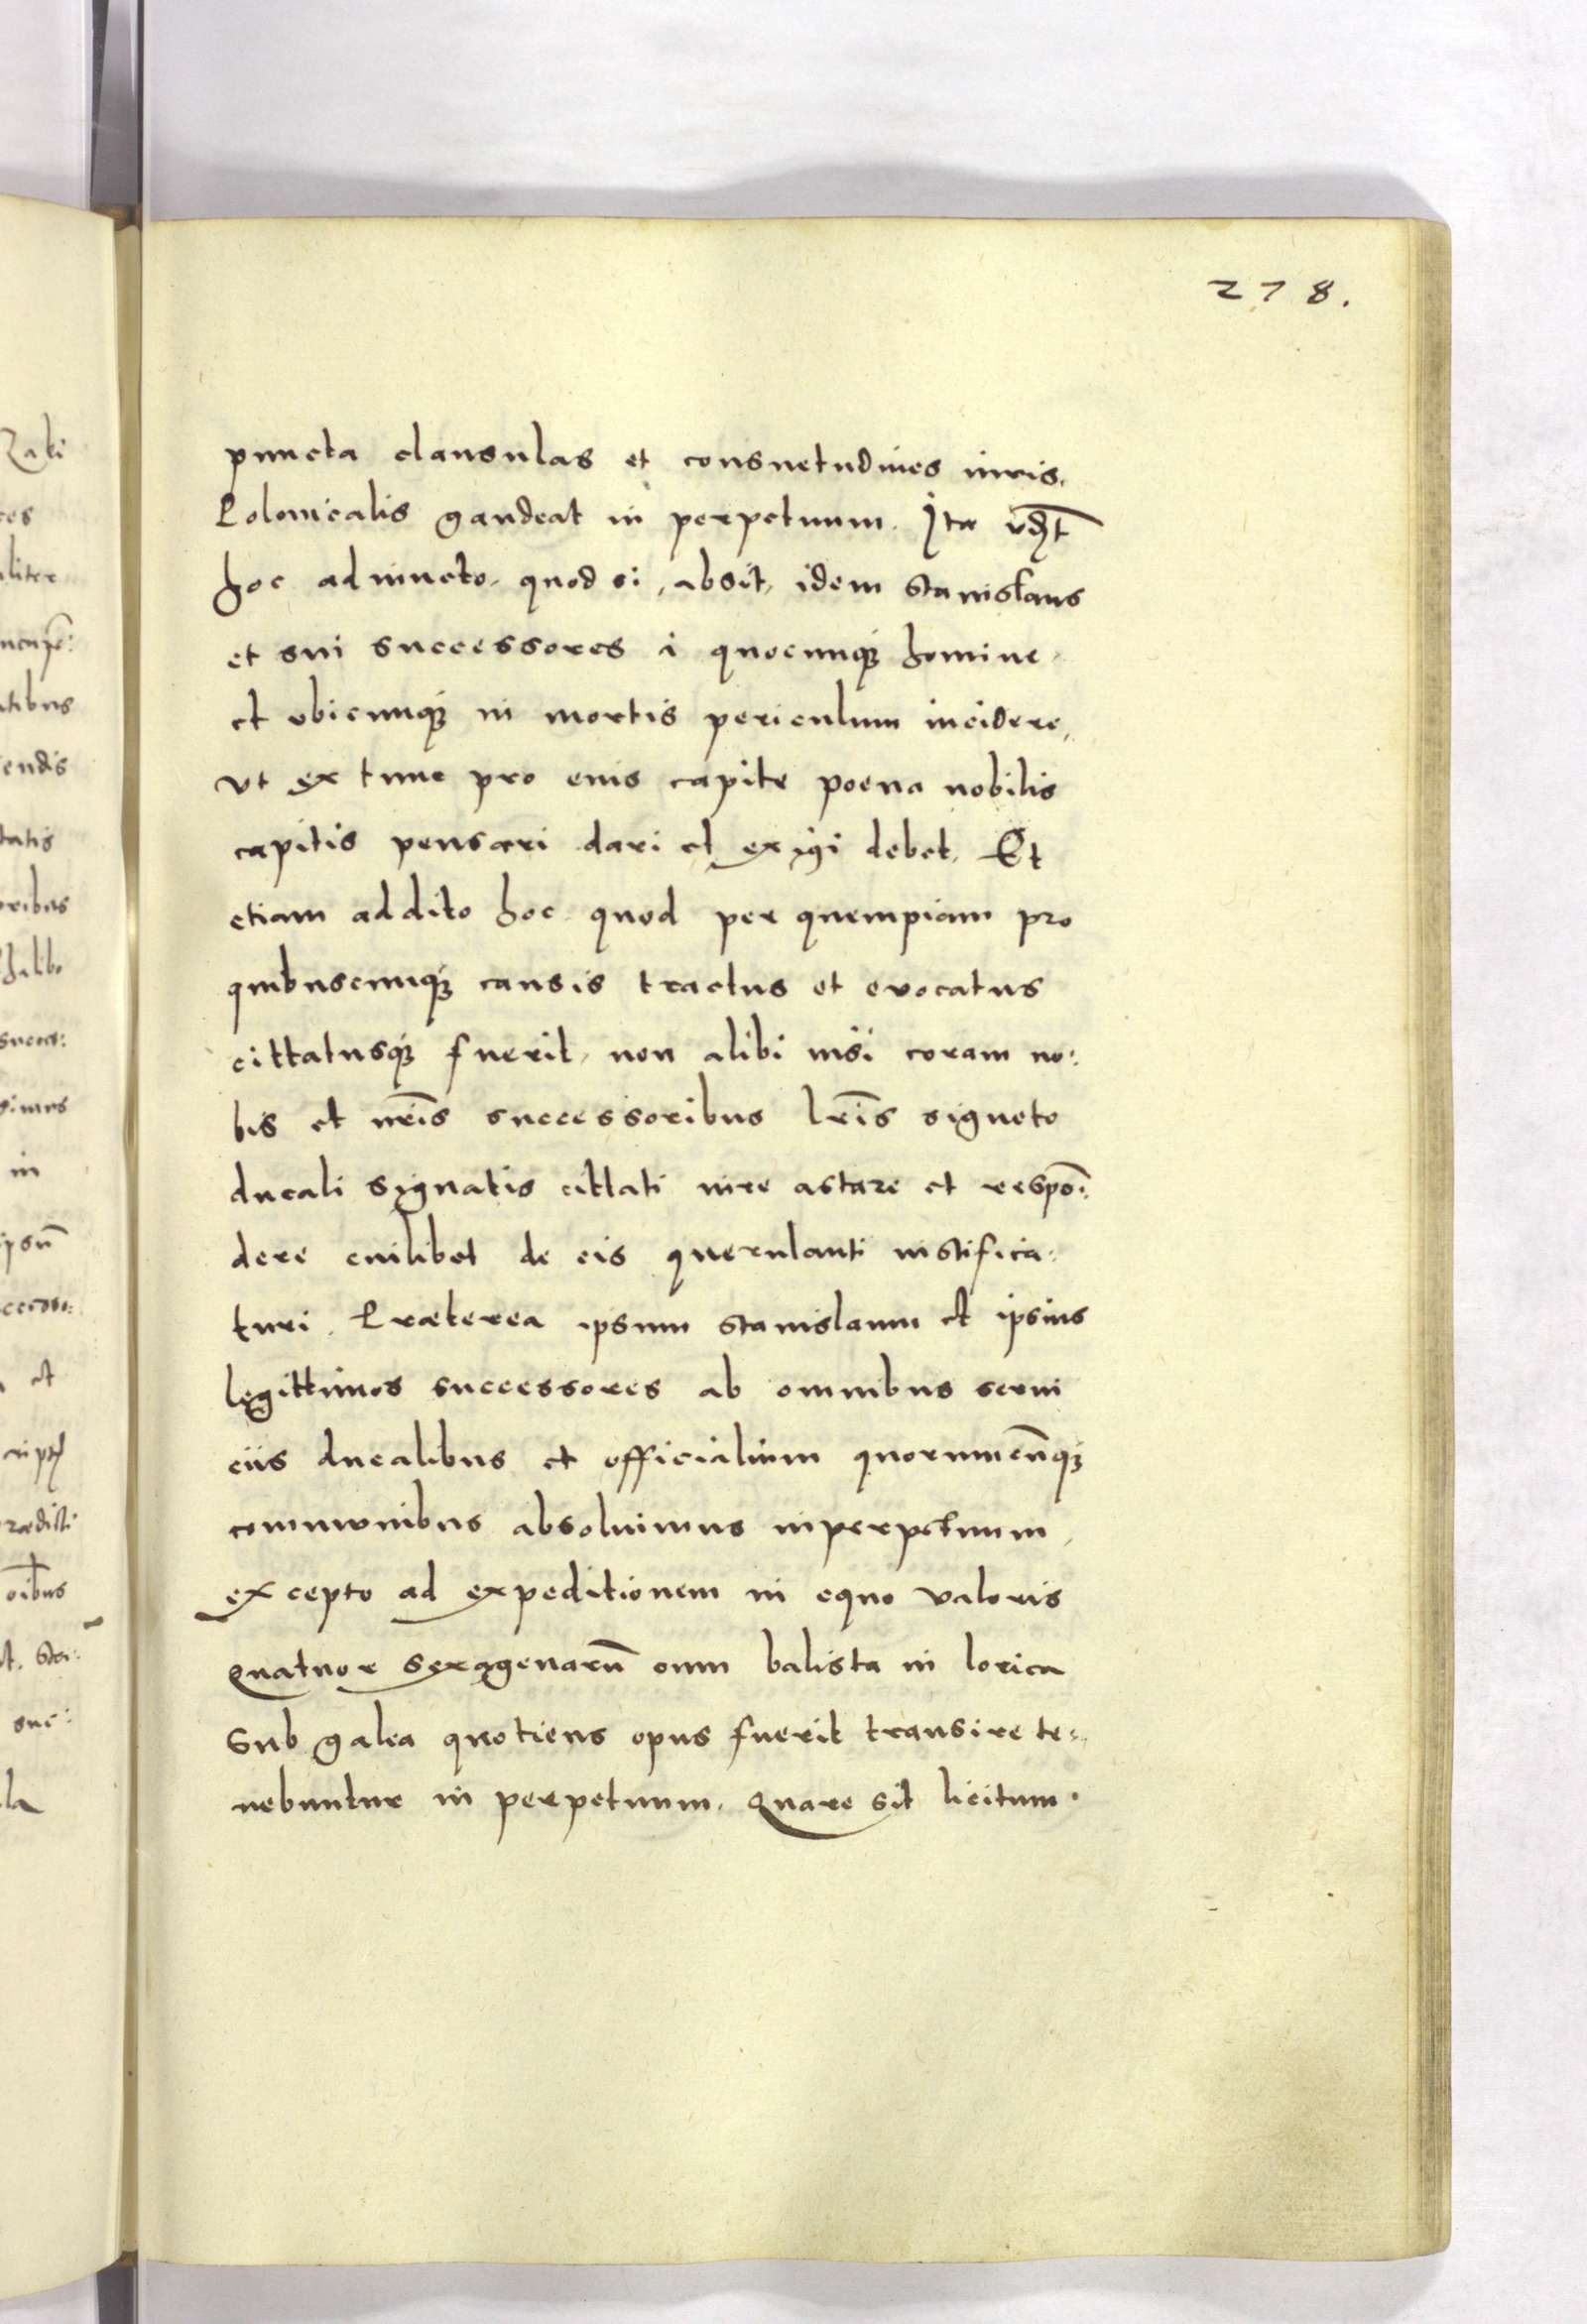 278.
puncta clausulas et consuetudines iuris
Polonicalis gaudeat in perpetuum. Ita vdꝫt
hoc adiuncto, quod si, absit, idem Stanislaus
et sui successores à quocunqꝫ homine,
et vbicunqꝫ in mortis periculum incidere,
vt ex tunc pro eius capite poena nobilis
capitis pensari dari et exigi debet. Et
etiam addito hoc quod per quempiam pro
quibuscunqꝫ causis tractus et evocatus
cittatusqꝫ fuerit, non alibi nisi coram no:
bis et nr̄is successoribus lr̄is signeto
ducali signatis cittati iure astare et respō:
dere cuilibet de eis querulanti iustifica:
turi. Præterea ipsum Stanislaum et ipsius
legittimos successores ab omnibus serui
ciis ducalibus et officialium quorumcūqꝫ
communibus absoluimus in perpetuum,
excepto ad expeditionem in equo valoris
quatuor sexagenarū cum balista in lorica
sub galea quotiens opus fuerit transire te:
nebuntur in perpetuum. Quare sit licitum.